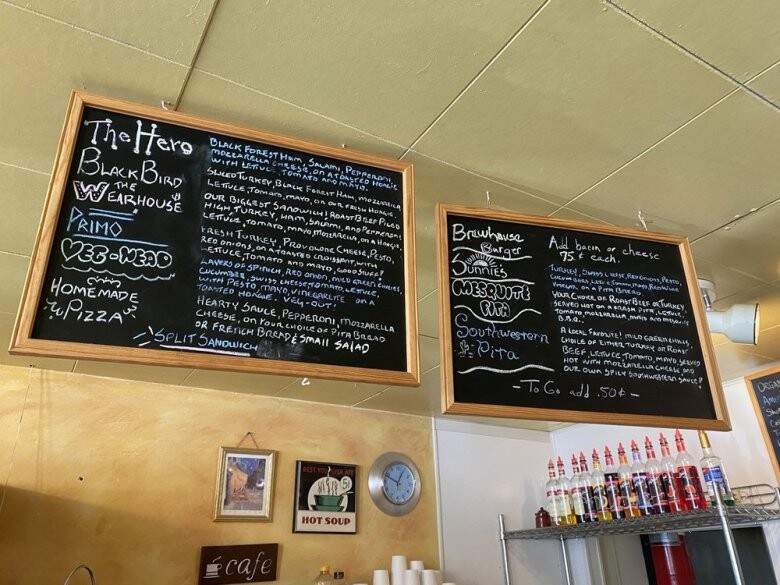 The Hero
Black Forest Ham, Salami, Pepperoni
mozzarella cheese, on a toasted hoagie
with lettuce, tomato and mayo.
Black Bird
Sliced Turkey, Black Forest Ham, mozzarella
lettuce, tomato, mayo, on our fresh hoagie.
the
Wearhouse
our biggest sandwich! Roast Beef piled
high turkey, ham, salami, and pepperoni
lettuce, tomato, mayo, mozzarella, on a hoagie.
Primo
Fresh turkey, Provolone cheese, Pesto,
red onions, on a toasted croissant, with
lettuce, tomato and mayo. Good stuff!
Veg-Head
Layers of spinach, red onion, mild green chilies,
cucumber, swiss cheese, tomato, lettuce
with pesto, mayo, on a
toasted hoagie. Veg-out!
Homemade
Pizza
Hearty sauce, pepperoni, mozzarella
cheese, on your choice of pita bread
or french bread & small salad
Split Sandwich
Brewhouse
Burger
Add bacon or cheese
75¢ each.
Sunnies
Turkey, swiss, red onions, pesto,
on a pita bread
Mesquite
Pita
your choice of roast beef or turkey
served hot on a pita, lettuce,
tomato, mozzarella, mayo and mesquite
B.B.Q.
Southwestern
Pita
A local favorite! mild green chilis,
choice of either turkey or roast
beef, lettuce, tomato, mayo, served
hot with mozzarella cheese and
our own spicy southwestern sauce!
- To Go add .50¢ -
BEST YOU EVER ATE
5¢
HOT SOUP
cafe